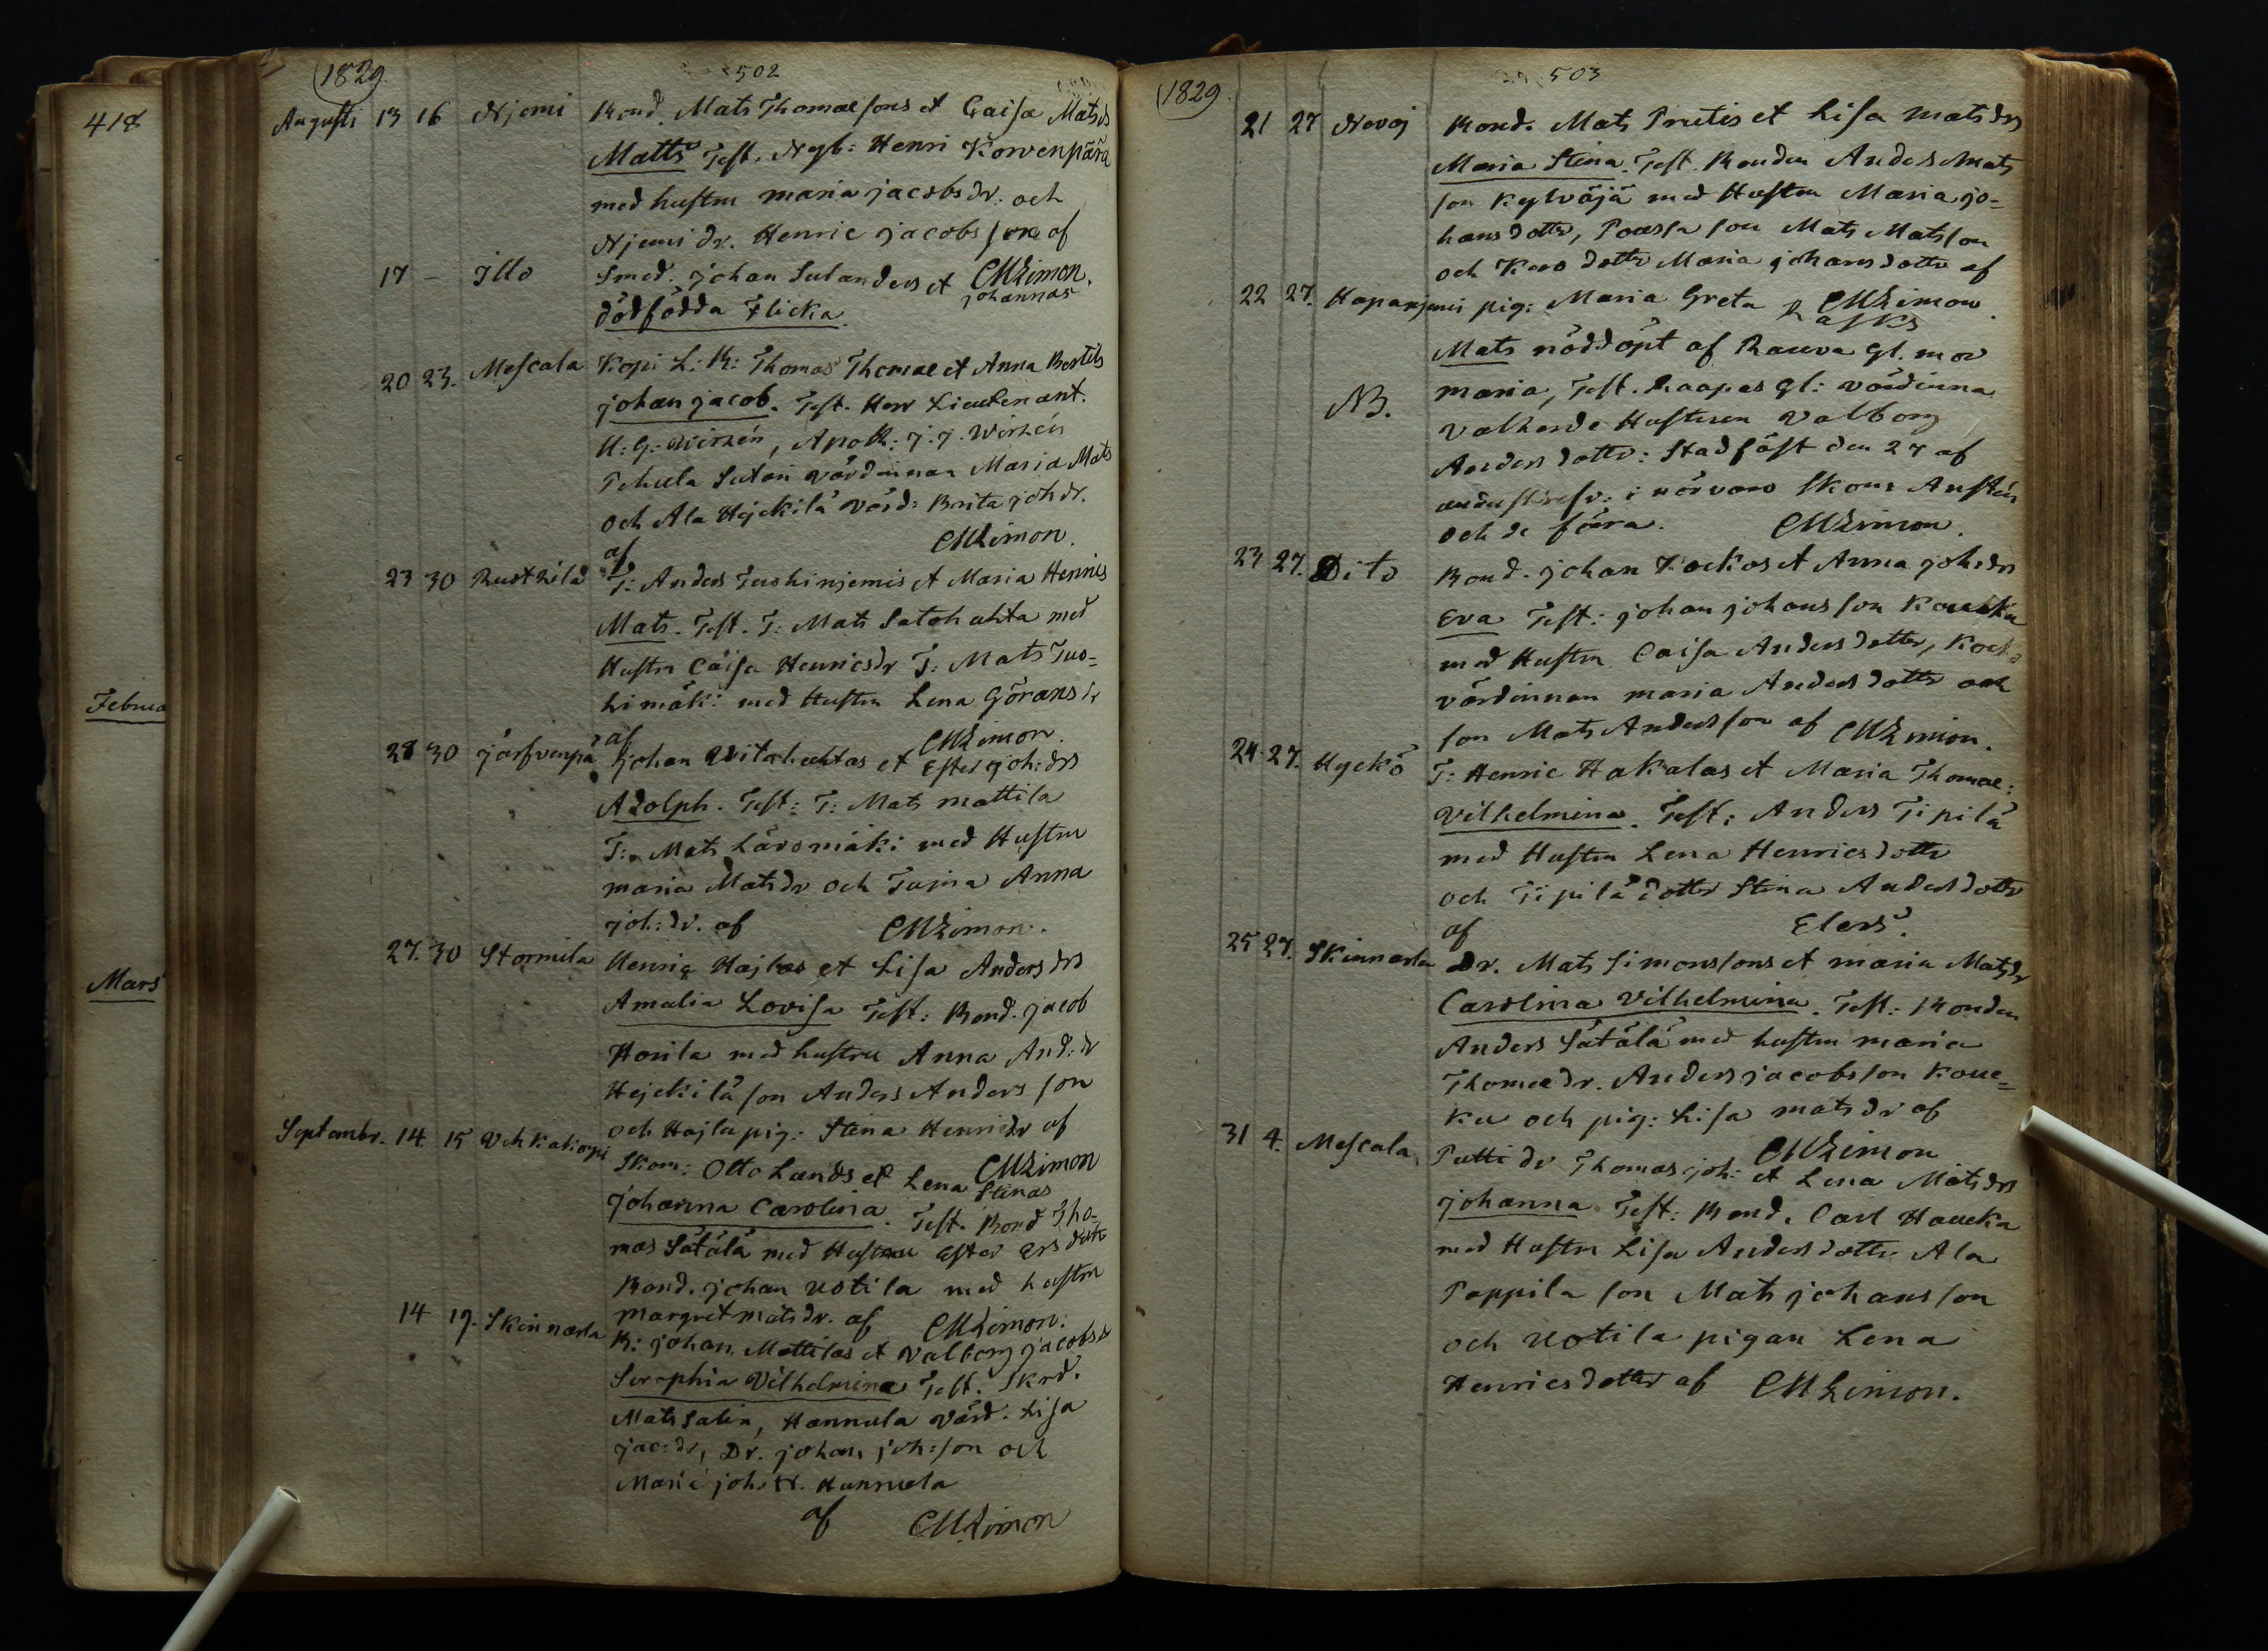 418
Februa
Mars
1829.
502
Augusti 13 16 Njemi Bond. Mats Thomaesons et Caisa Matsdrs
Matts Test. Nyb: Henri Korvenpärä
med hustru maria jacobsdr. och
Njemi dr. Henric jacobsson af
17 - Illo Smed. johan Sulanders et CMLimon.
johannas
dödfödda Flicka.
20 23. Mescala Kopi L: B: Thomas Thomae et Anna Bertils
johan jacob. Test. Herr Lieutenant.
Apoth: j. j.
värdinnan Maria Mats
och Ala Hejckilä värd: Brita joh dr.
af CMLimon.
23 30 Rusthila T: Anders et Maria Henrics
Mats. Test. T: Mats Satohuhta med
Hustru Caisa Henricsdr T: Mats Tuo=
himäki med Hustru Lena Göransdr
af CMLimon.
28 30 järfvenpä johan et Ester joh:drs
Adolph. Test: T: Mats mattila
T: Mats med Hustru
maria Matsdr och Anna
joh:dr. af CMLimon.
27. 30 Stormila Henric Hajlas et Lisa Andersdrs
Amalia Lovisa Test: Bond. jacob
Horila med hustru Anna And:dr
Hejckilä son Anders Andersson
och Hajla pig: Stina Henricdr af
Septembr. 14. 15 Skom: Otto Lunds et Lena CMLimon
Stinas
johanna Carolina. Test. Bond Tho-
mas Sätälä med Hustru Ester
Bond. johan Uotila med hustru
margret matsdr. af CMLimon.
14 19. Skinnarla B: johan Mattilas et Valborg jacobsdr
Seraphia Vilhelmina Test. Skrd.
Mats Salin, Hannula värd. Lisa
jac:dr, Dr. johan joh:son och
Maria joh:dr. Hannula
af CMLimon
1829.
503
21 27 Novoj Bond. Mats Prutis et Lisa matsdrs
Maria Stina. Test. Bonden Anders Mats
son Kylväjä med Hustru Maria jo-
hansdotter, son Mats Matsson
och dotter Maria johansdotter af
22 27. Haparnjemi pig: Maria Greta CMLimon.
Rasks
Mats nöddöpt af Rauva gl. mor
NB. maria, Test. gl: värdinna
Hustrun Valborg
Andersdotter: Stadfäst den 27 af
och de förra. CMLimon.
23 27. Dito Bond. johan Kockos et Anna joh:drs
Eva Test: johan johansson
med Hustru Caisa Andersdotter,
värdinnan maria Andersdotter och
son Mats Andersson af CMLimon.
24 27. Hyckö T: Henric Hakalas et Maria Thomae:
Vilhelmina. Test: Anders Tipilä
med Hustru Lena Henricsdotter
och Tipilä dotter Stina Andersdotter
af Elers.
25 27. Skinnarla Dr. Mats Simonssons et maria Matsdr
Carolina Vilhelmina. Test: Bonden
Anders Sätälä med hustru maria
Thomaedr. Anders jacobsson Kou=
ku och pig: Lisa matsdr af
31 4. Mescala Putti dr Thomas joh: et Lena Matsdrs CMLimon
johanna Test: Bond. Carl Haucka
med Hustru Lisa Andersdotter Ala
Pappila son Mats johansson
och Uotila pigan Lena
Henricsdotter af CMLimon.